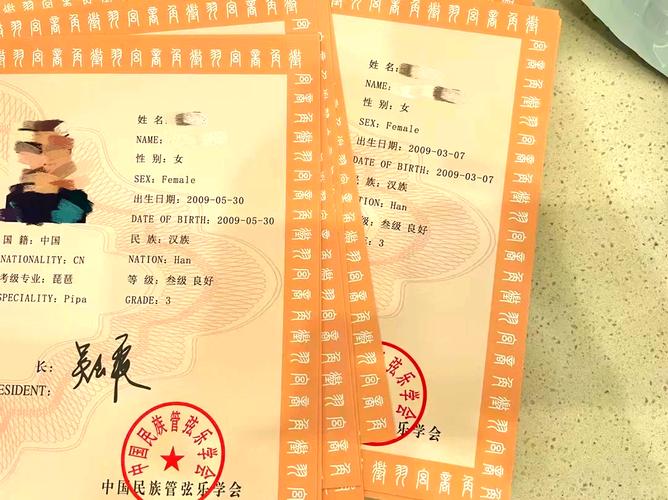 姓 名:
NAME:
性 别: 女
SEX: Female
出生日期: 2009-05-30
DATE OF BIRTH: 2009-05-30
国 籍: 中国
民 族: 汉族
NATIONALITY: CN
NATION: Han
考级专业: 琵琶
等 级: 叁级 良好
SPECIALITY: Pipa
GRADE: 3
长:
ESIDENT:
中国民族管弦乐学会
中国民族管弦乐学会
姓 名:
NAME:
性 别: 女
SEX: Female
出生日期: 2009-03-07
DATE OF BIRTH: 2009-03-07
族: 汉族
TION: Han
级: 叁级 良好
E: 3
弦乐学会
乐学会